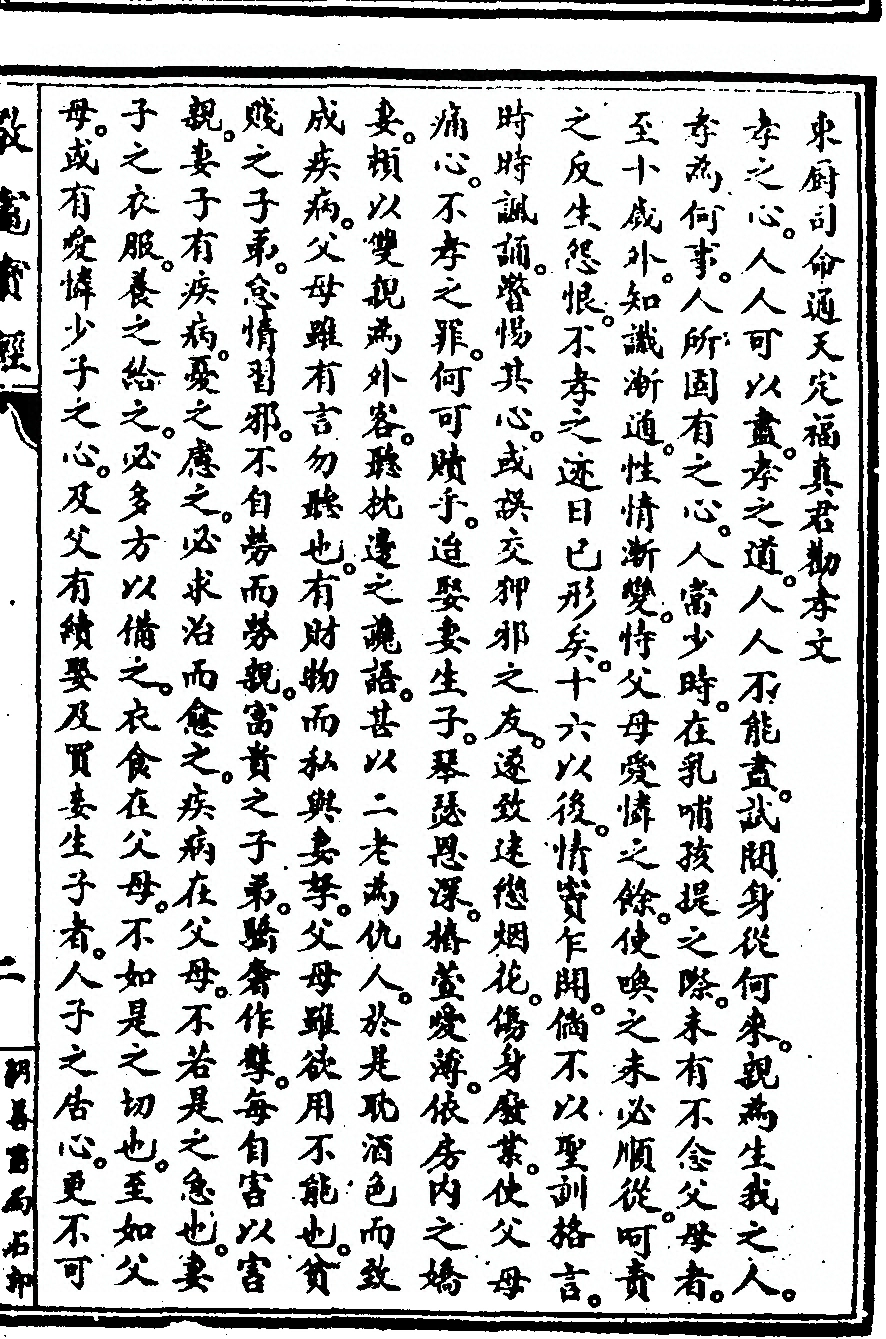 東厨司命通天定福真君勸孝文
孝之心。人人可以盡。孝之道。人人不能盡。試問身從何來。親為生我之人。
孝為何事。人所固有之心。人當少時。在乳哺孩提之際。未有不念父母者。
至十歲外。知識漸通。性情漸變。恃父母愛憐之餘。使喚之未必順從。呵責
之反生怨恨。不孝之迹日已形矣。十六以後。情竇乍開。倘不以聖訓格言。
時時諷誦。警惕其心。或誤交狎邪之友。遂致迷戀烟花。傷身廢業。使父母
痛心。不孝之罪。何可贖乎。迨娶妻生子。琴瑟恩深。椿萱愛薄。依房內之嬌
妻。頻以雙親為外客。聽枕邊之讒語。甚以二老為仇人。於是耽酒色而致
成疾病。父母雖有言勿聽也。有財物而私與妻孥。父母雖欲用不能也。貧
賤之子弟。怠惰習邪。不自勞而勞親。富貴之子弟。驕奢作孽。每自害以害
親。妻子有疾病。憂之慮之。必求治而愈之。疾病在父母。不若是之急也。妻
子之衣服。養之給之。必多方以備之。衣食在父母。不如是之切也。至如父
母。或有愛憐少子之心。及父有續娶及買妾生子者。人子之居心。更不可
敬竈寶經
二
明善書局石印